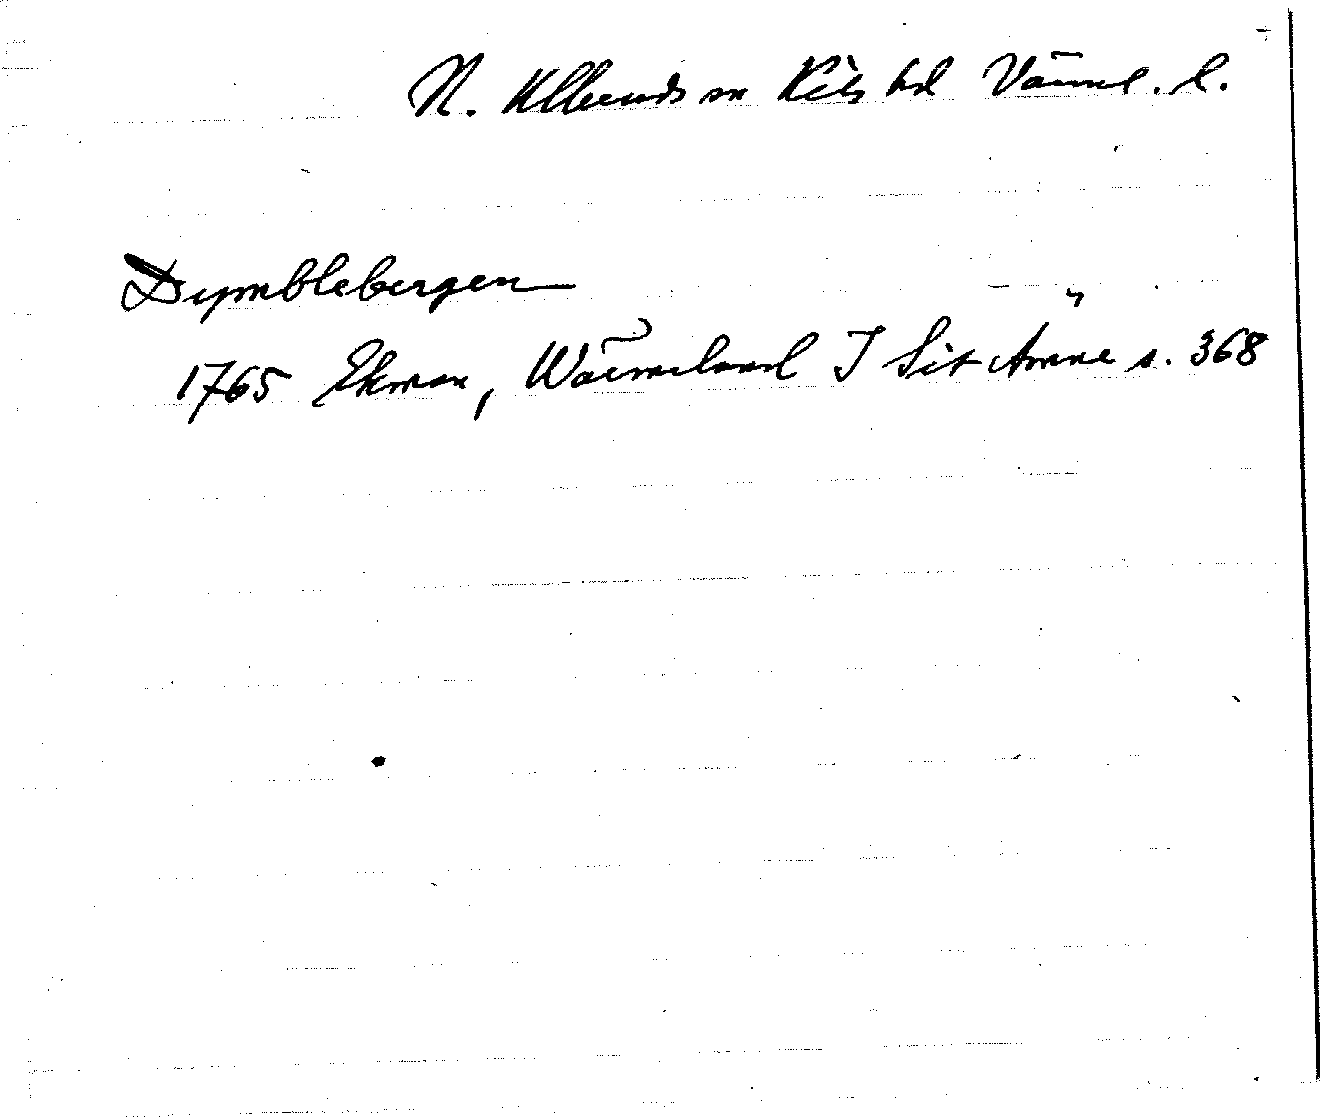 N. Ullerids sn Kils hd Värml. l.
Dymblebergen
1765 Ekman, Wärmeland I Sit Ämne s. 368